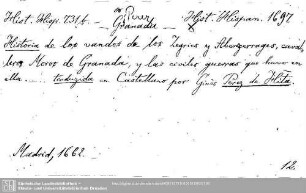 or Perez
Hist. Hisp. 731 f. — Granada — Hist. Hispan. 1697
Historia de los vandos de los Zegries y Abencerrages, caval-
leros Moros de Granada, y las civiles guerras que huvo en
ella ... traduzida en Castellano por Ginés Perez de Hita.
Madrid, 1662.
12.
Sächsische Landesbibliothek -
Staats- und Universitätsbibliothek Dresden